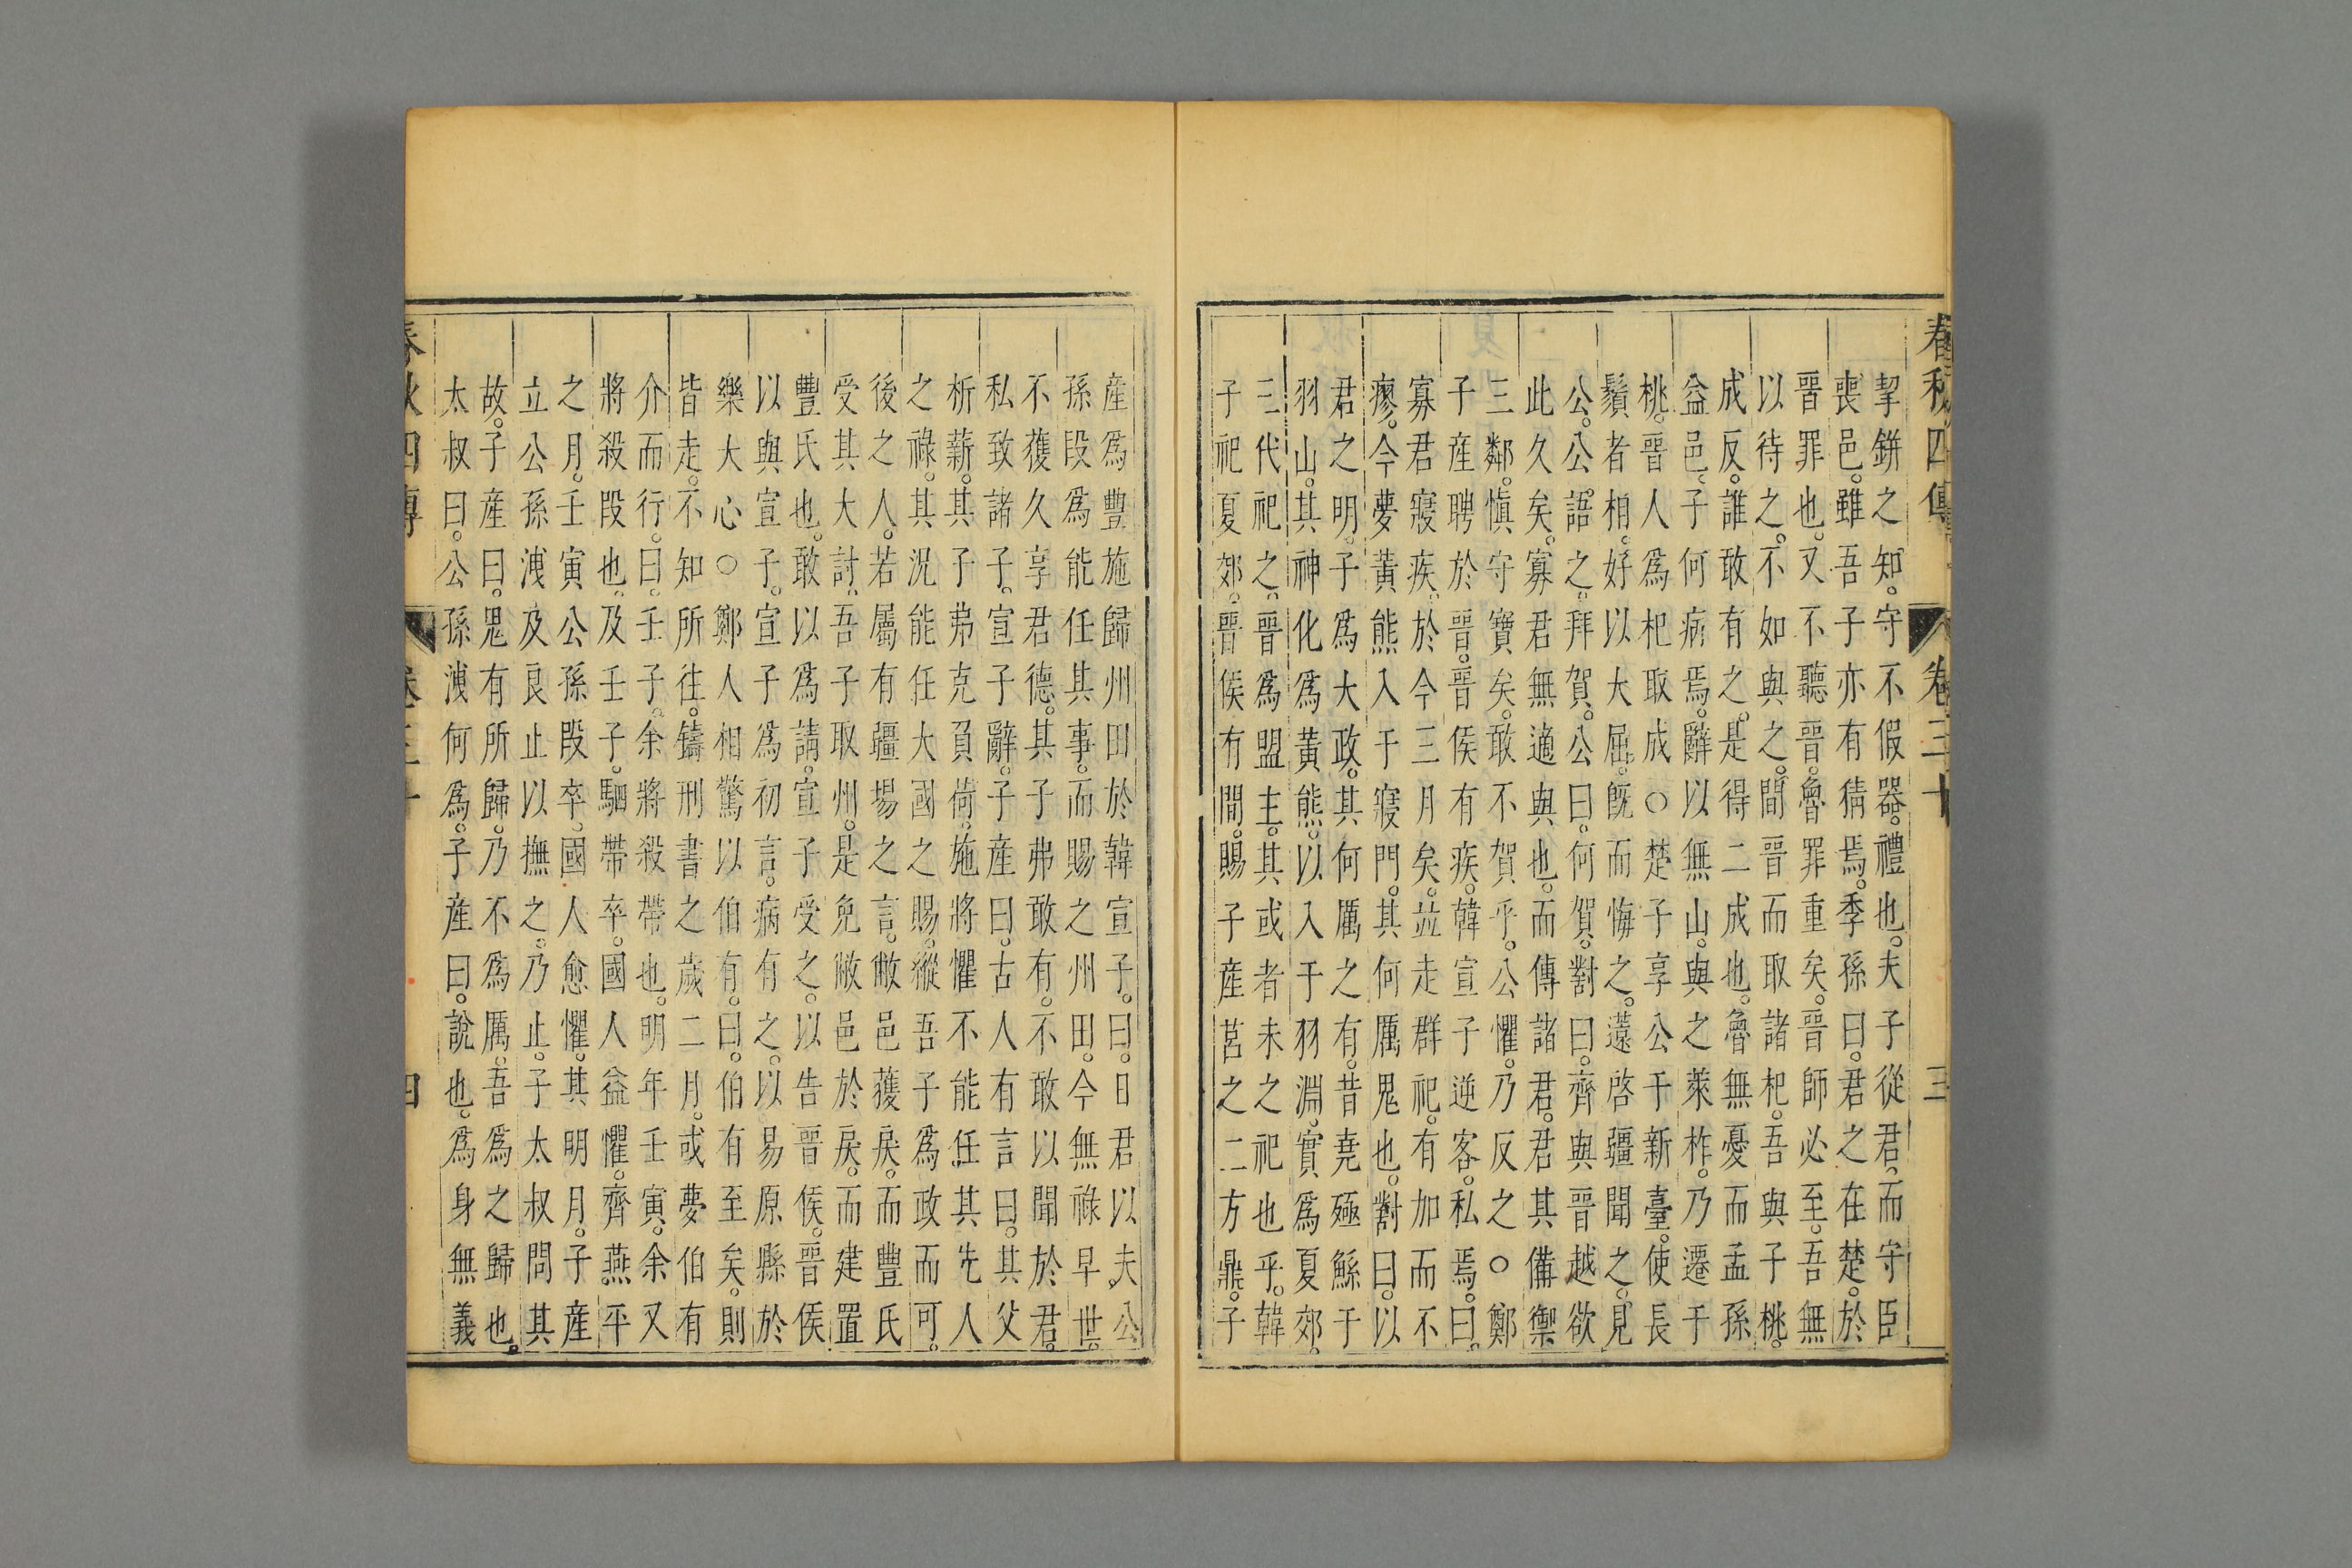 春秋四傳 卷三十 三
挈鉼之知。守不假器。禮也。夫子從君。而守臣
喪邑。雖吾子亦有猜焉。季孫曰。君之在楚。於
晉罪也。又不聽晉。魯罪重矣。晉師必至。吾無
以待之。不如與之。間晉而取諸杞。吾與子桃。
成反。誰敢有之。是得二成也。魯無憂而孟孫
益邑。子何病焉。辭以無山。與之萊柞。乃遷于
桃。晉人爲杞取成○楚子享公于新臺。使長
鬚者相。好以大屈。旣而悔之。薳啓疆聞之。見
公。公語之。拜賀。公曰。何賀。對曰。齊與晉越欲
此久矣。寡君無適與也。而傳諸君。君其備禦
三鄰。愼守寶矣。敢不賀乎。公懼。乃反之○鄭
子產聘於晉。晉侯有疾。韓宣子逆客。私焉。曰。
寡君寢疾。於今三月矣。並走群祀。有加而不
瘳。今夢黃熊入于寢門。其何厲鬼也。對曰。以
君之明。子爲大政。其何厲之有。昔堯殛鯀于
羽山。其神化爲黃熊。以入于羽淵。實爲夏郊。
三代祀之。晉爲盟主。其或者未之祀也乎。韓
子祀夏郊。晉侯有間。賜子產莒之二方鼎。子
產爲豐施歸州田於韓宣子。曰。日君以夫公
孫段爲能任其事。而賜之州田。今無祿早世。
不獲久享君德。其子弗敢有。不敢以聞於君。
私致諸子。宣子辭。子產曰。古人有言曰。其父
析薪。其子弗克負荷。施將懼不能任其先人
之祿。其況能任大國之賜。縱吾子爲政而可。
後之人。若屬有疆埸之言。敝邑獲戾。而豐氏
受其大討。吾子取州。是免敝邑於戾。而建置
豐氏也。敢以爲請。宣子受之。以告晉侯。晉侯
以與宣子。宣子爲初言。病有之。以易原縣於
樂大心○鄭人相驚以伯有。曰。伯有至矣。則
皆走。不知所往。鑄刑書之歲二月。或夢伯有
介而行。曰。壬子。余將殺帶也。明年壬寅。余又
將殺段也。及壬子。駟帶卒。國人益懼。齊燕平
之月。壬寅。公孫段卒。國人愈懼。其明月。子產
立公孫洩及良止以撫之。乃止。子太叔問其
故。子產曰。鬼有所歸。乃不爲厲。吾爲之歸也。
太叔曰。公孫洩何爲。子產曰。說也。爲身無義
春秋四傳 卷三十 四